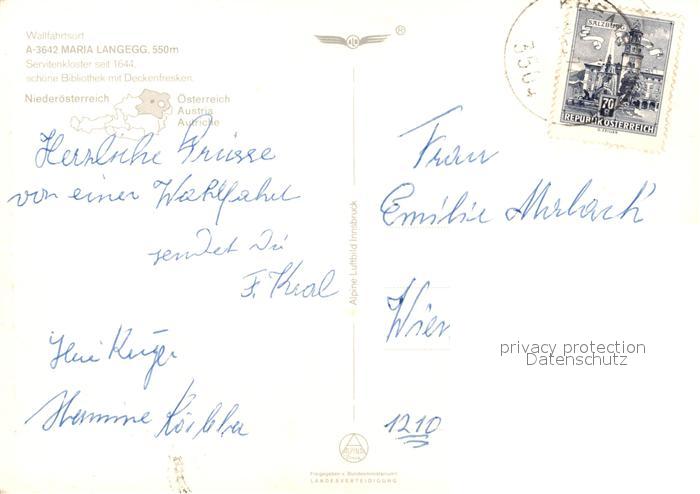 Wallfahrtsort
A-3642 MARIA LANGEGG, 550m
Servitenkloster seit 1644,
schöne Bibliothek mit Deckenfresken.
Niederösterreich
Österreich
Austria
Autriche
Herzliche Grüsse
von einer Wahlfahrt
sendet Dir
F. Kral
Hermine
Alpine Luftbild Innsbruck
®
SALZBURG
70
REPUBLIK ÖSTERREICH
Frau
Emilie
Wien
1210
privacy protection
Datenschutz
ALPINE
Freigegeben v. Bundesministerium f.
LANDESVERTEIDIGUNG